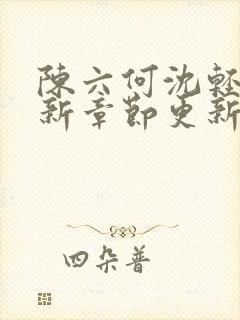 陳六何沈輕
新章節更新
四朵普